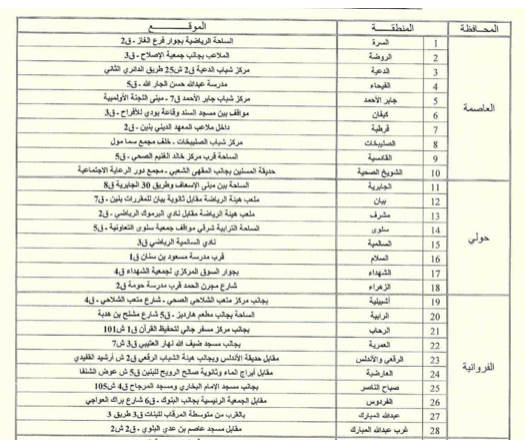 المحافظة المنطقة الموقع
العاصمة
1 السرة الساحة الرياضية بجوار فرع الغاز - ق2
2 الروضة الملاعب بجانب جمعية الإصلاح - ق3
3 الدعية مركز شباب الدعية ق2 ش25 طريق الدائري الثاني
4 الفيحاء مدرسة عبدالله حسن الجار الله - ق5
5 جابر الأحمد مركز شباب جابر الأحمد ق7 - مبنى اللجنة الأولمبية
6 كيفان مواقف بين مسجد السند وقاعة بودي للأفراح - ق3
7 قرطبة داخل ملاعب المعهد الديني بنين - ق2
8 الصليبخات مركز شباب الصليبخات - خلف مجمع سما مول
9 القادسية الساحة قرب مركز خالد الغنيم الصحي - ق5
10 الشويخ الصحية حديقة المسنين بجانب المقهى الشعبي - مجمع دور الرعاية الاجتماعية
حولي
11 الجابرية الساحة بين مبنى الإسعاف وطريق 30 الجابرية ق8
12 بيان ملعب هيئة الرياضة مقابل ثانوية بيان للمقررات بنين - ق7
13 مشرف ملعب هيئة الرياضة مقابل نادي اليرموك الرياضي - ق2
14 سلوى الساحة الترابية شرقي مواقف جمعية سلوى التعاونية - ق5
15 السالمية نادي السالمية الرياضي ق3
16 السلام قرب مدرسة مسعود بن سنان ق1
17 الشهداء بجوار السوق المركزي لجمعية الشهداء ق4
18 الزهراء شارع مجرن الحمد قرب مدرسة حومة ق2
الفروانية
19 أشبيلية بجانب مركز متعب الشلاحي الصحي - شارع متعب الشلاحي - ق4
20 الرابية الساحة بجانب مطعم هارديز - ق5 شارع مشلح بن هدبة
21 الرحاب بجانب مركز مسفر جالي لتحفيظ القرآن ق1 ش101
22 العمرية بجانب مسجد ضيف الله نهار العتيبي ق3 ش7
23 الرقعي والأندلس مقابل حديقة الأندلس وبجانب هيئة الشباب الرقعي ق2 ش أرشيد الفقيدي
24 العارضية مقابل أبراج الماء وثانوية صالح الرويح للبنين ق5 ش عوض الشلفا
25 صباح الناصر بجانب مسجد الإمام البخاري ومسجد المرجاح ق4 ش105
26 الفردوس مقابل الجمعية الرئيسية بجانب البنوك - ق6 شارع براك العواجي
27 عبدالله المبارك بالقرب من متوسطة المرقاب للبنات ق3 طريق 3
28 غرب عبدالله المبارك مقابل مسجد عاصم بن عدي البلوي - ق2 ش2